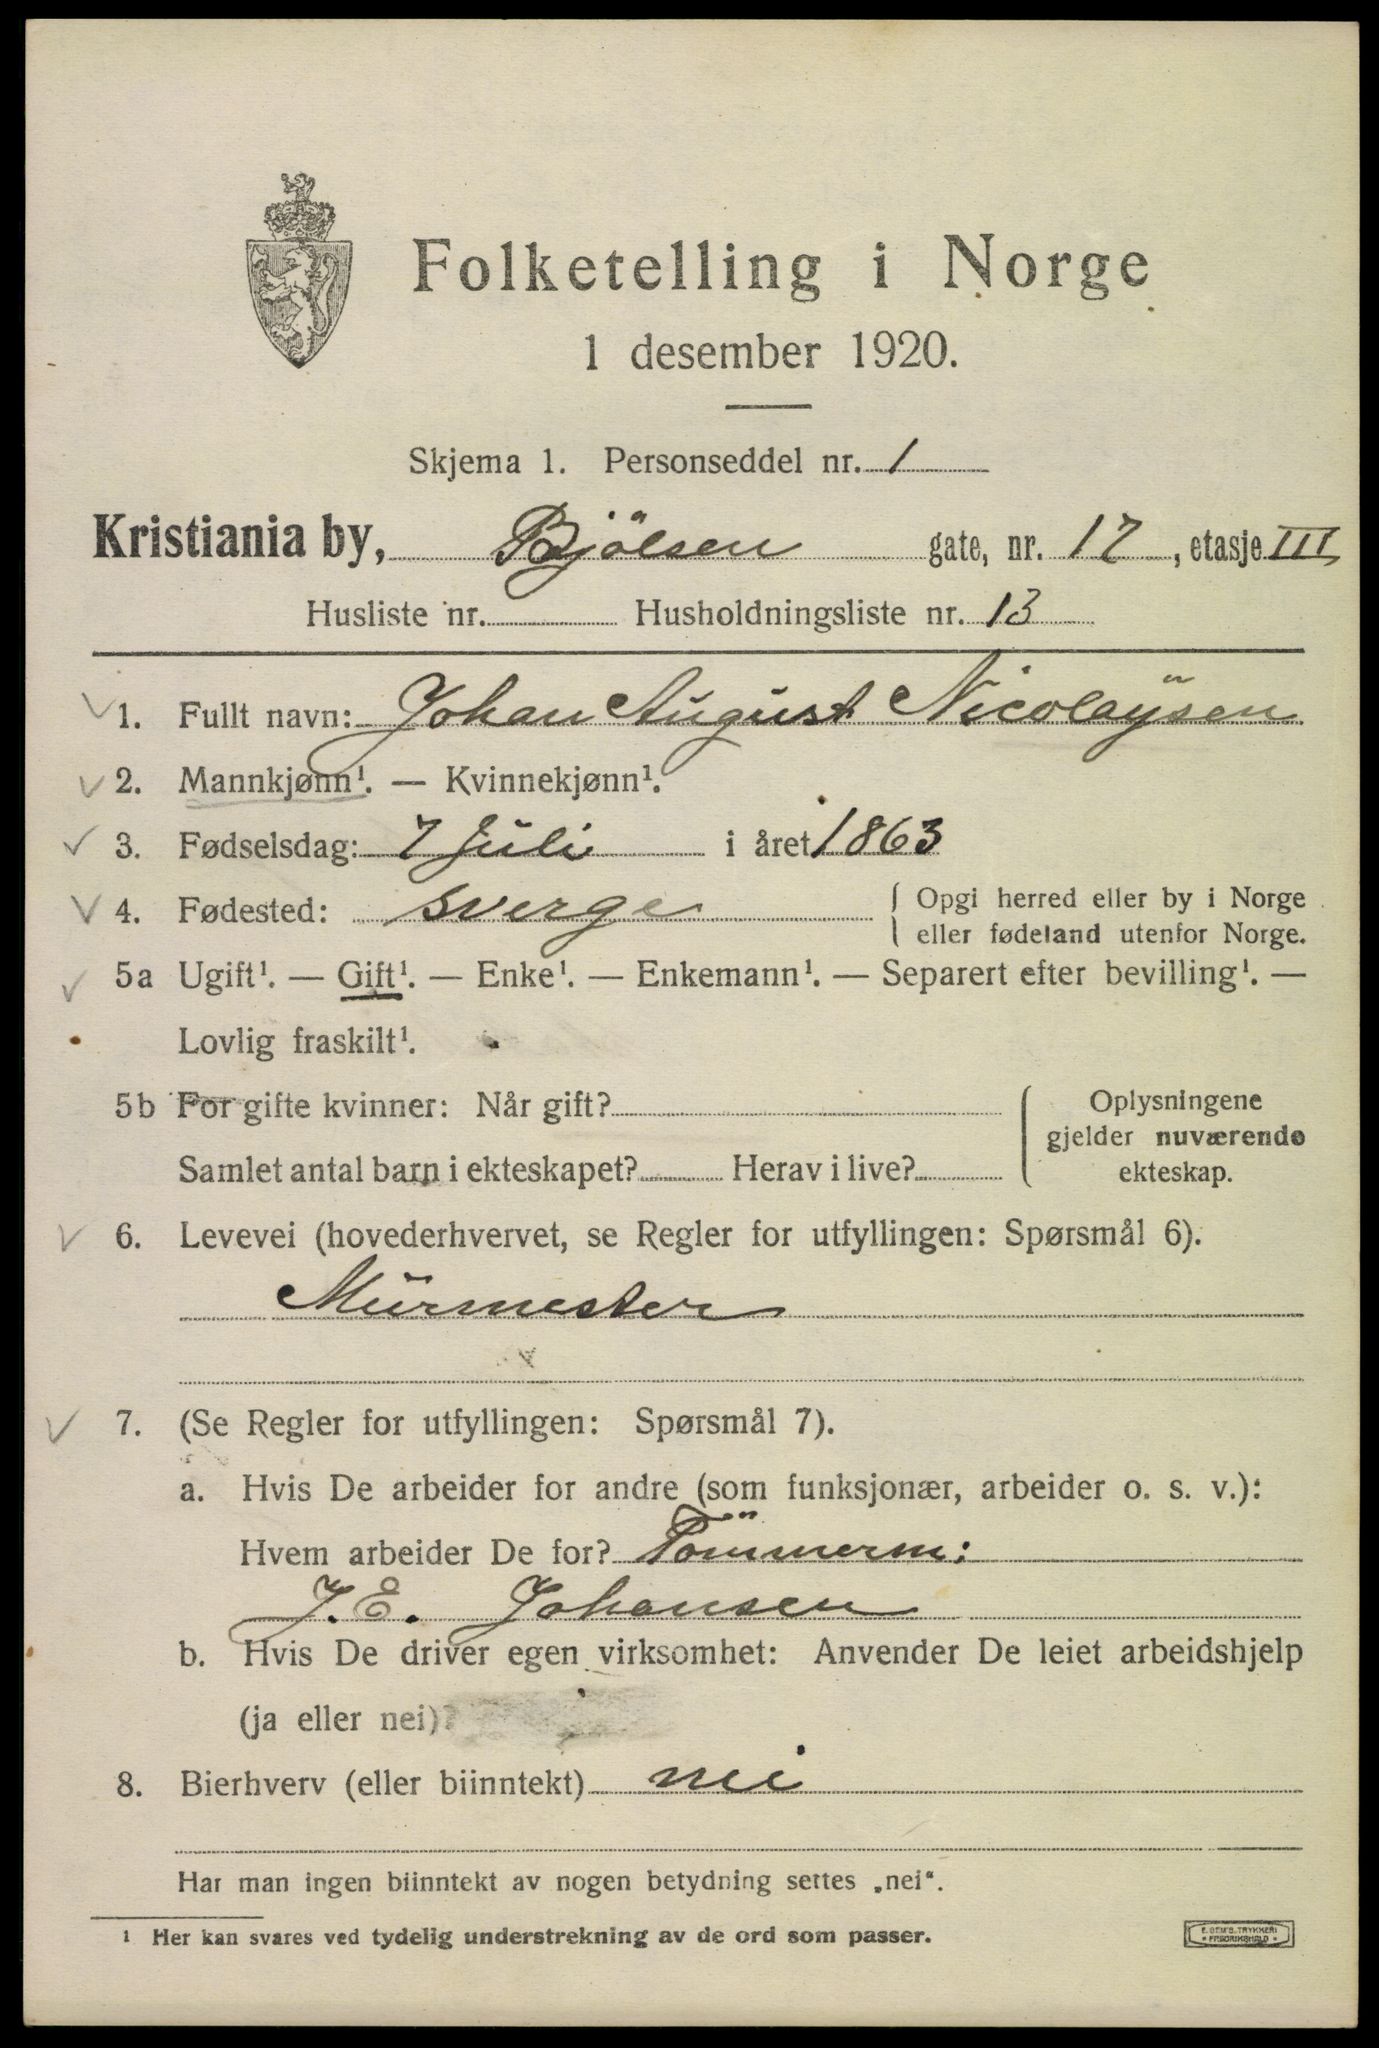 Folketelling i Norge
1 desember 1920.
Skjema 1. Personseddel nr. 1
Kristiania by, Bjölsen gate, nr. 17, etasje III
Husliste nr. Husholdningsliste nr. 13
1. Fullt navn: Johan August Nicolaÿsen
2. Mannkjønn¹. — Kvinnekjønn¹.
3. Fødselsdag: 7 Juli i året 1863
4. Fødested: sverge { Opgi herred eller by i Norge
eller fødeland utenfor Norge.
5a Ugift¹. — Gift¹. — Enke¹. — Enkemann¹. — Separert efter bevilling¹. —
Lovlig fraskilt¹.
5b For gifte kvinner: Når gift? { Oplysningene
gjelder nuværende
Samlet antal barn i ekteskapet? Herav i live? ekteskap.
6. Levevei (hovederhvervet, se Regler for utfyllingen: Spørsmål 6).
Mürmester
7. (Se Regler for utfyllingen: Spørsmål 7).
a. Hvis De arbeider for andre (som funksjonær, arbeider o. s. v.):
Hvem arbeider De for? Tömmerm:
J. E. Johansen
b. Hvis De driver egen virksomhet: Anvender De leiet arbeidshjelp
(ja eller nei)?
8. Bierhverv (eller biinntekt) nei
Har man ingen biinntekt av nogen betydning settes „nei“.
¹ Her kan svares ved tydelig understrekning av de ord som passer.
E. SEM'S TRYKKERI
FREDRIKSHALD